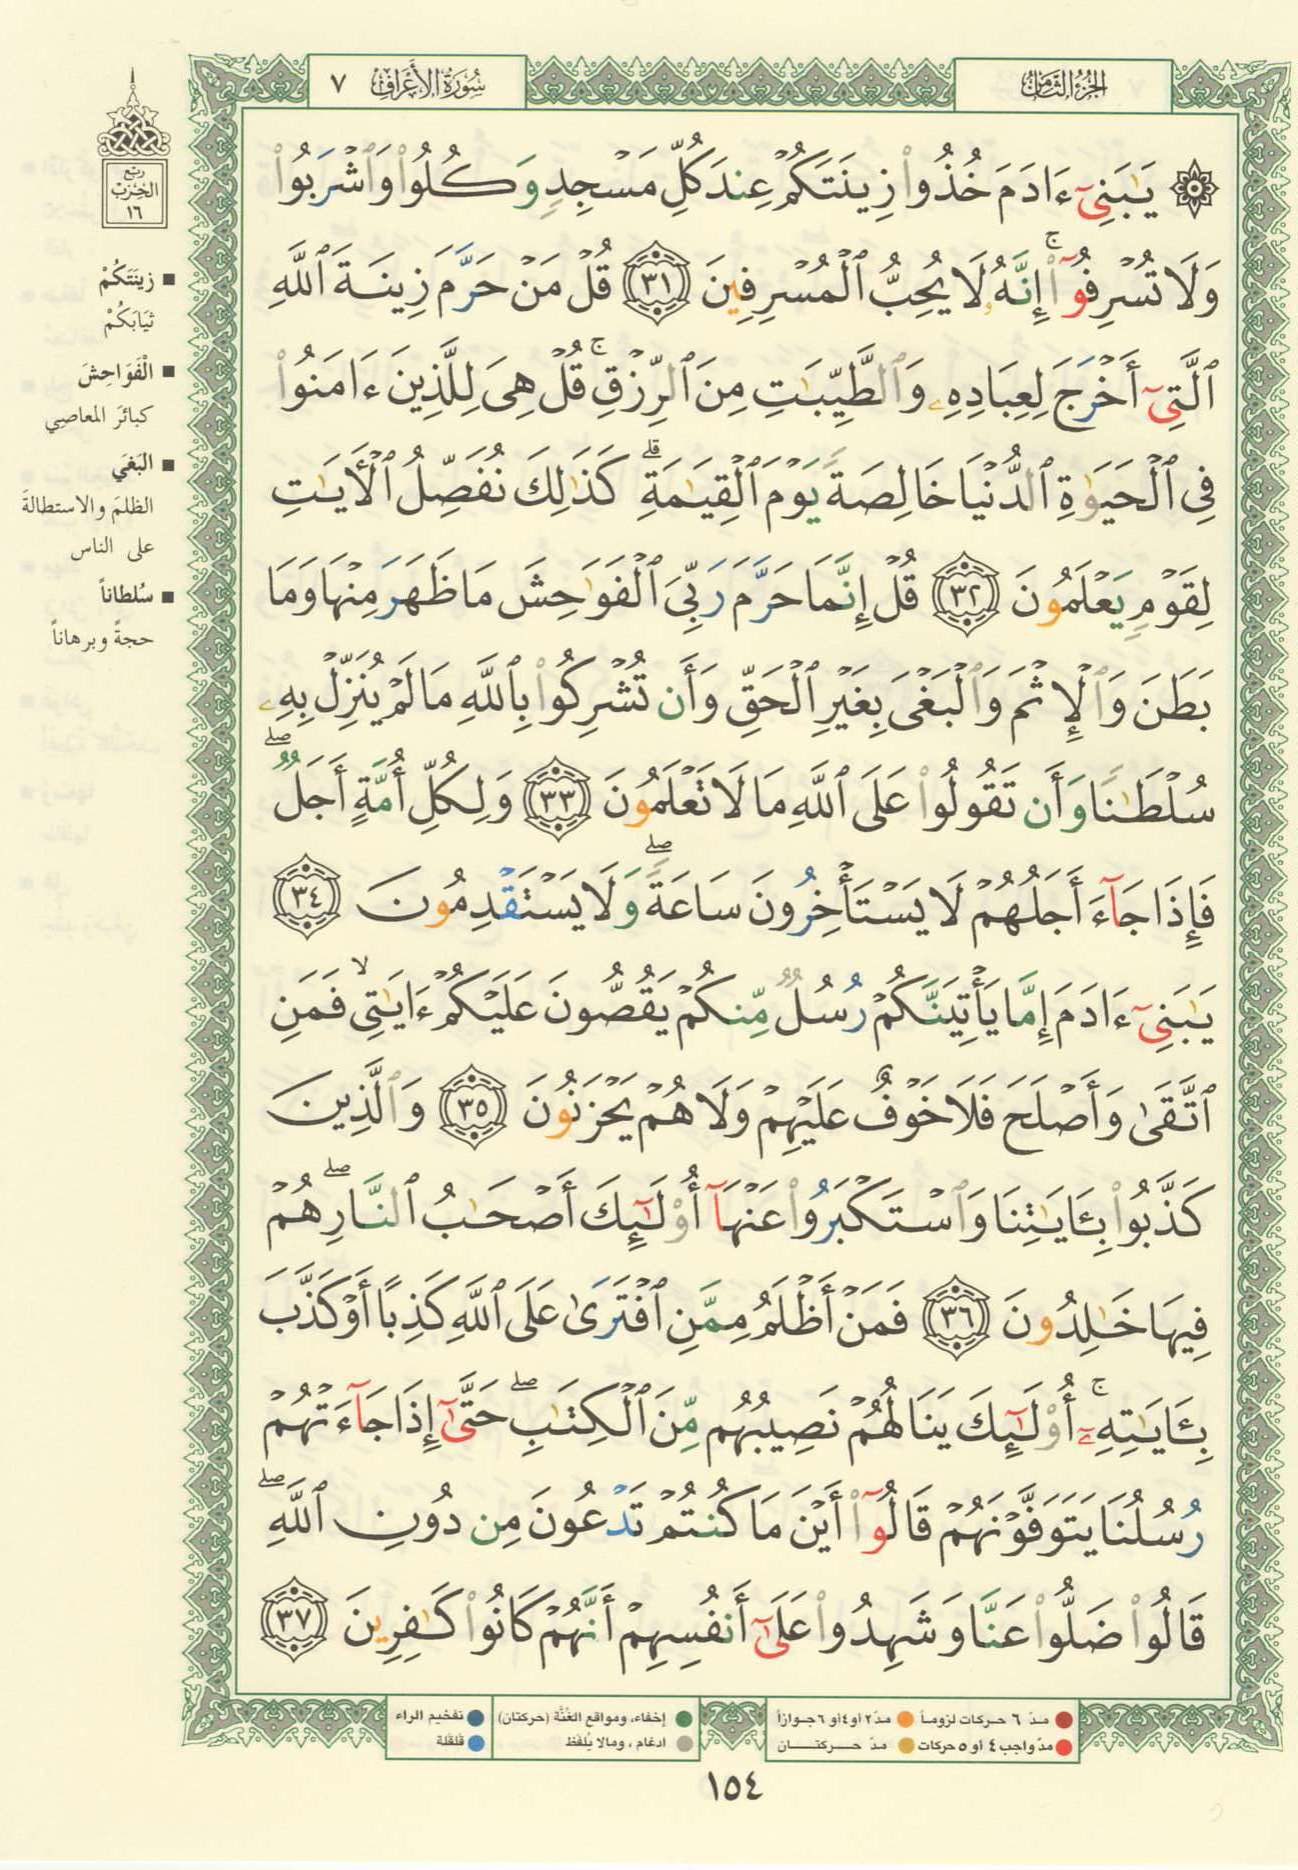 الجزء الثامن
سورة الأعراف ٧
۞ يَٰبَنِىٓ ءَادَمَ خُذُوا۟ زِينَتَكُمْ عِندَ كُلِّ مَسْجِدٍ وَكُلُوا۟ وَٱشْرَبُوا۟
وَلَا تُسْرِفُوٓا۟ ۚ إِنَّهُۥ لَا يُحِبُّ ٱلْمُسْرِفِينَ ٣١ قُلْ مَنْ حَرَّمَ زِينَةَ ٱللَّهِ
ٱلَّتِىٓ أَخْرَجَ لِعِبَادِهِۦ وَٱلطَّيِّبَٰتِ مِنَ ٱلرِّزْقِ ۚ قُلْ هِىَ لِلَّذِينَ ءَامَنُوا۟
فِى ٱلْحَيَوٰةِ ٱلدُّنْيَا خَالِصَةً يَوْمَ ٱلْقِيَٰمَةِ ۗ كَذَٰلِكَ نُفَصِّلُ ٱلْأَيَٰتِ
لِقَوْمٍ يَعْلَمُونَ ٣٢ قُلْ إِنَّمَا حَرَّمَ رَبِّىَ ٱلْفَوَٰحِشَ مَا ظَهَرَ مِنْهَا وَمَا
بَطَنَ وَٱلْإِثْمَ وَٱلْبَغْىَ بِغَيْرِ ٱلْحَقِّ وَأَن تُشْرِكُوا۟ بِٱللَّهِ مَا لَمْ يُنَزِّلْ بِهِۦ
سُلْطَٰنًا وَأَن تَقُولُوا۟ عَلَى ٱللَّهِ مَا لَا تَعْلَمُونَ ٣٣ وَلِكُلِّ أُمَّةٍ أَجَلٌ ۖ
فَإِذَا جَآءَ أَجَلُهُمْ لَا يَسْتَأْخِرُونَ سَاعَةً ۖ وَلَا يَسْتَقْدِمُونَ ٣٤
يَٰبَنِىٓ ءَادَمَ إِمَّا يَأْتِيَنَّكُمْ رُسُلٌ مِّنكُمْ يَقُصُّونَ عَلَيْكُمْ ءَايَٰتِى ۙ فَمَنِ
ٱتَّقَىٰ وَأَصْلَحَ فَلَا خَوْفٌ عَلَيْهِمْ وَلَا هُمْ يَحْزَنُونَ ٣٥ وَٱلَّذِينَ
كَذَّبُوا۟ بِـَٔايَٰتِنَا وَٱسْتَكْبَرُوا۟ عَنْهَآ أُو۟لَٰٓئِكَ أَصْحَٰبُ ٱلنَّارِ ۖ هُمْ
فِيهَا خَٰلِدُونَ ٣٦ فَمَنْ أَظْلَمُ مِمَّنِ ٱفْتَرَىٰ عَلَى ٱللَّهِ كَذِبًا أَوْ كَذَّبَ
بِـَٔايَٰتِهِۦٓ ۚ أُو۟لَٰٓئِكَ يَنَالُهُمْ نَصِيبُهُم مِّنَ ٱلْكِتَٰبِ ۖ حَتَّىٰٓ إِذَا جَآءَتْهُمْ
رُسُلُنَا يَتَوَفَّوْنَهُمْ قَالُوٓا۟ أَيْنَ مَا كُنتُمْ تَدْعُونَ مِن دُونِ ٱللَّهِ ۖ
قَالُوا۟ ضَلُّوا۟ عَنَّا وَشَهِدُوا۟ عَلَىٰٓ أَنفُسِهِمْ أَنَّهُمْ كَانُوا۟ كَٰفِرِينَ ٣٧
ربع
الحزب
١٦
■ زِينَتَكُمْ
ثيَابَكُمْ
■ الْفَوَاحِشَ
كبائرَ المعاصِي
■ البَغيَ
الظلمَ والاستطالةَ
على الناس
■ سُلطاناً
حجةً وبرهاناً
مدّ ٦ حركات لزوماً
مدّ ٢ أو ٤ أو ٦ جوازاً
مدّ واجب ٤ أو ٥ حركات
مدّ حركتان
إخفاء، ومواقع الغُنَّة (حركتان)
ادغام، ومالا يُلفَظ
تفخيم الراء
قلقلة
١٥٤